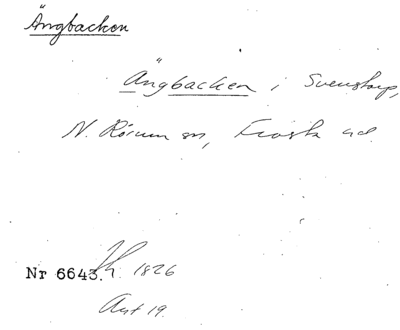 Ängbacken
Ängbacken i Svenstorp,
N. Rörum sn, Frosta hd.
Nr 6643. 1826
Avt 19.